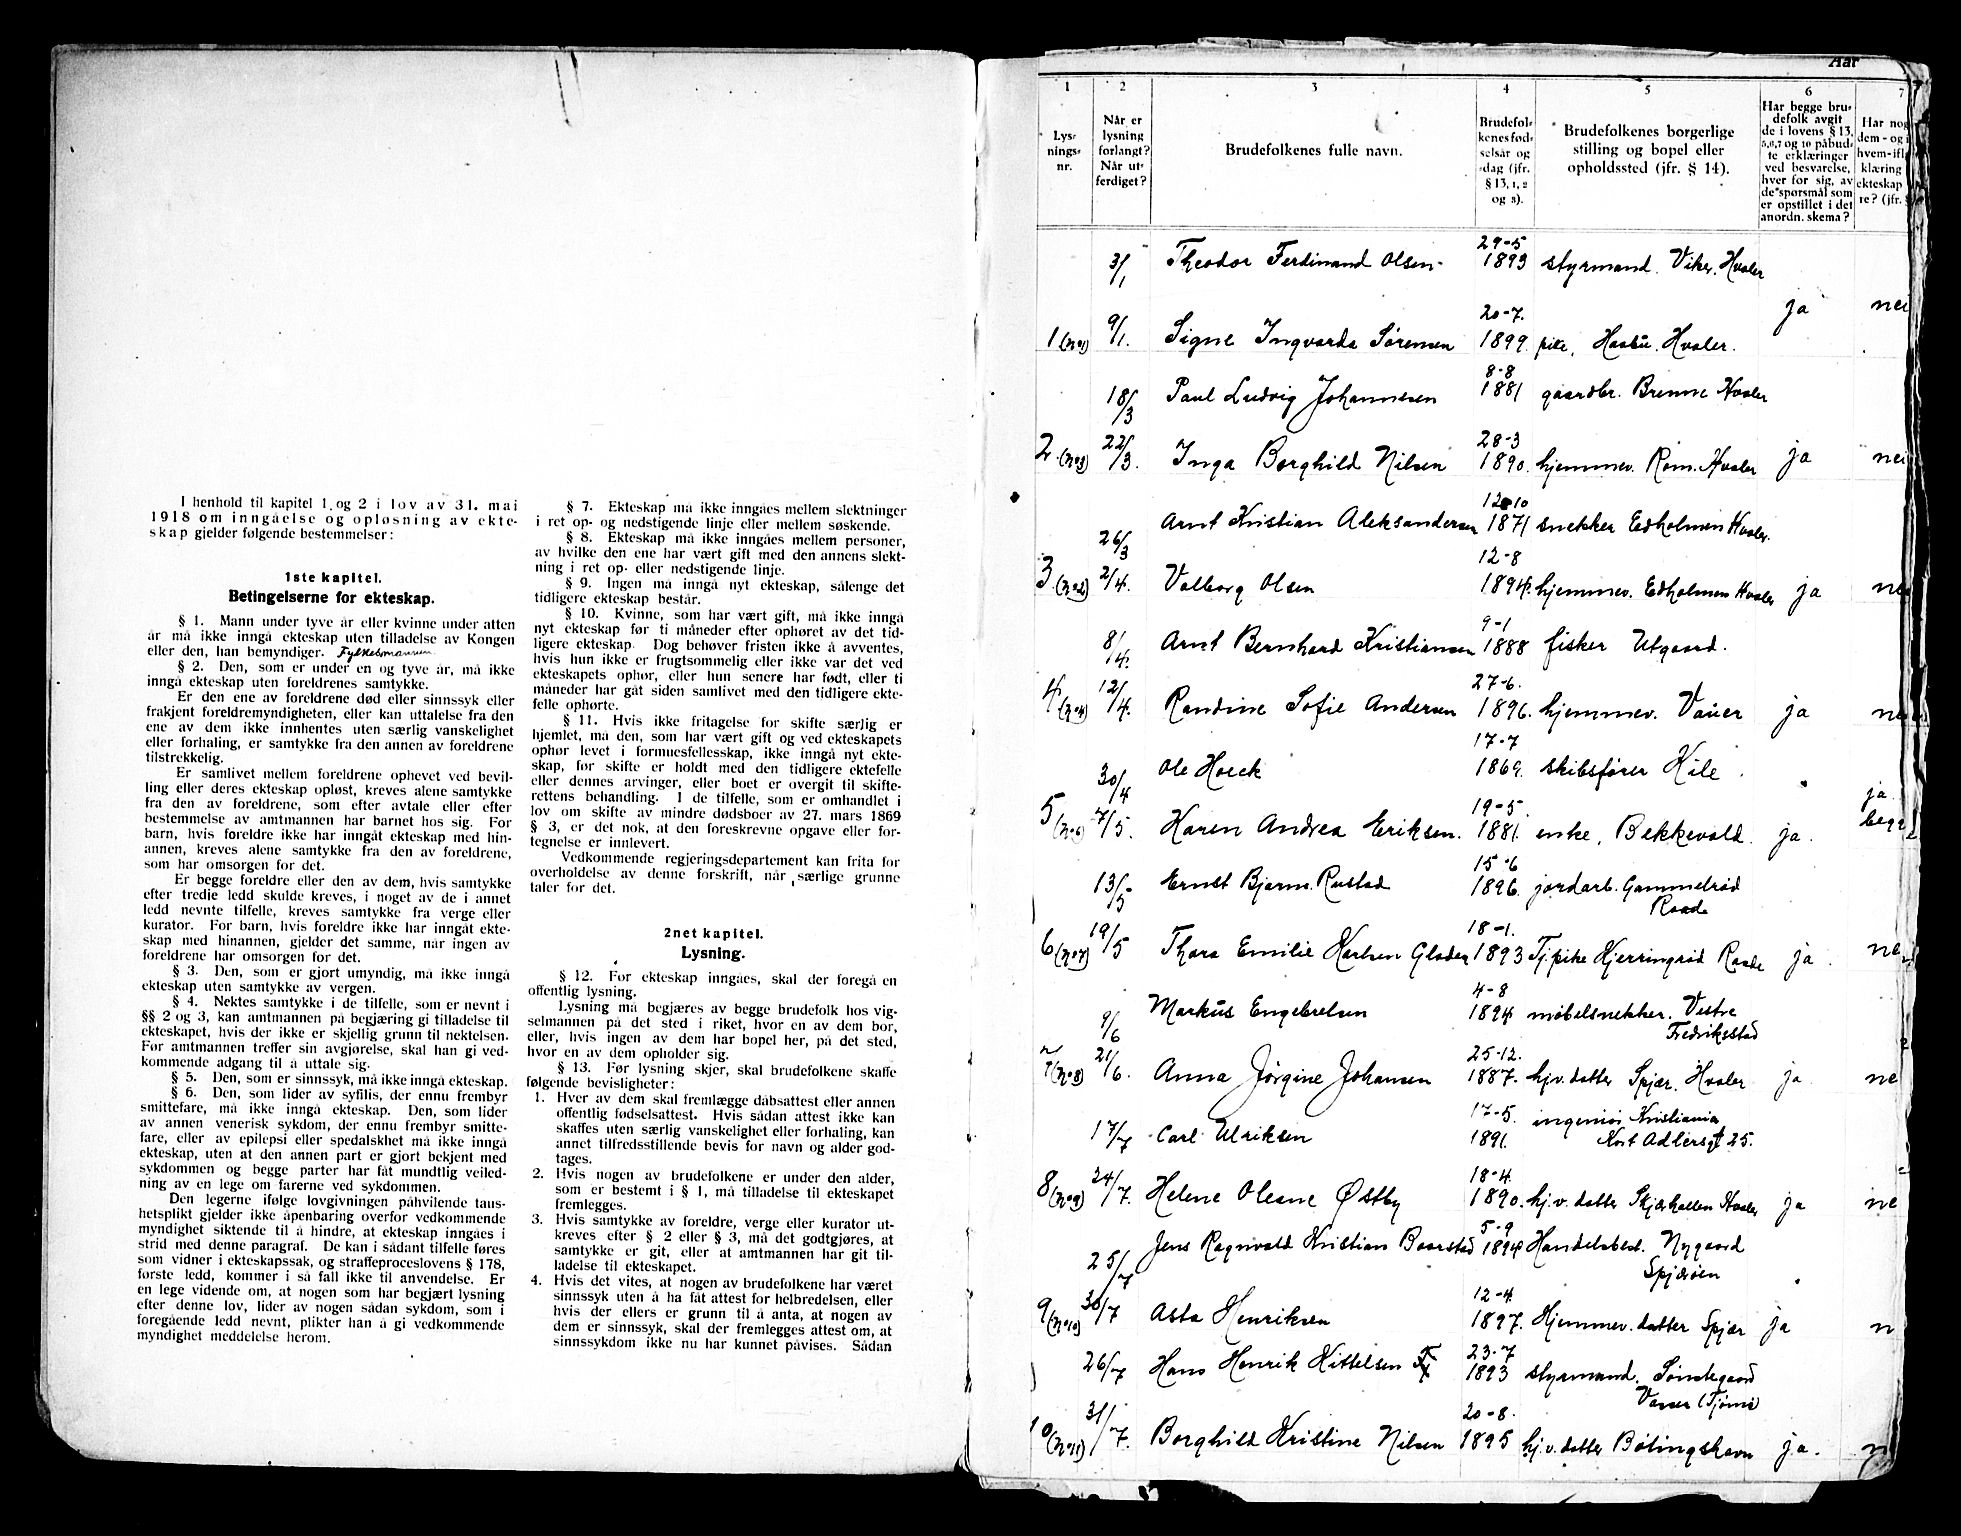 I henhold til kapitel 1 og 2 i lov av 31. mai
1918 om inngåelse og opløsning av ekte-
skap gjelder følgende bestemmelser:
1ste kapitel.
Betingelserne for ekteskap.
§ 1. Mann under tyve år eller kvinne under atten
år må ikke inngå ekteskap uten tilladelse av Kongen
eller den, han bemyndiger. Fylkesmannen
§ 2. Den, som er under en og tyve år, må ikke
inngå ekteskap uten foreldrenes samtykke.
Er den ene av foreldrene død eller sinnssyk eller
frakjent foreldremyndigheten, eller kan uttalelse fra den
ene av dem ikke innhentes uten særlig vanskelighet
eller forhaling, er samtykke fra den annen av foreldrene
tilstrekkelig.
Er samlivet mellem foreldrene ophevet ved bevil-
ling eller deres ekteskap opløst, kreves alene samtykke
fra den av foreldrene, som efter avtale eller efter
bestemmelse av amtmannen har barnet hos sig. For
barn, hvis foreldre ikke har inngåt ekteskap med hin-
annen, kreves alene samtykke fra den av foreldrene,
som har omsorgen for det.
Er begge foreldre eller den av dem, hvis samtykke
efter tredje ledd skulde kreves, i noget av de i annet
ledd nevnte tilfelle, kreves samtykke fra verge eller
kurator. For barn, hvis foreldre ikke har inngåt ekte-
skap med hinannen, gjelder det samme, når ingen av
foreldrene har omsorgen for det.
§ 3. Den, som er gjort umyndig, må ikke inngå
ekteskap uten samtykke av vergen.
§ 4. Nektes samtykke i de tilfelle, som er nevnt i
§§ 2 og 3, kan amtmannen på begjæring gi tilladelse til
ekteskapet, hvis der ikke er skjellig grunn til nektelsen.
Før amtmannen treffer sin avgjørelse, skal han gi ved-
kommende adgang til å uttale sig.
§ 5. Den, som er sinnssyk, må ikke inngå ekteskap.
§ 6. Den, som lider av syfilis, der ennu frembyr
smittefare, må ikke inngå ekteskap. Den, som lider
av annen venerisk sykdom, der ennu frembyr smitte-
fare, eller av epilepsi eller spedalskhet må ikke inngå
ekteskap, uten at den annen part er gjort bekjent med
sykdommen og begge parter har fåt mundtlig veiled-
ning av en lege om farerne ved sykdommen.
Den legerne ifølge lovgivningen påhvilende taus-
hetsplikt gjelder ikke åpenbaring overfor vedkommende
myndighet siktende til å hindre, at ekteskap inngåes i
strid med denne paragraf. De kan i sådant tilfelle føres
som vidner i ekteskapssak, og straffeproceslovens § 178,
første ledd, kommer i så fall ikke til anvendelse. Er
en lege vidende om, at nogen som har begjært lysning
efter denne lov, lider av nogen sådan sykdom, som i
foregående ledd nevnt, plikter han å gi vedkommende
myndighet meddelelse herom.
§ 7. Ekteskap må ikke inngåes mellem slektninger
i ret op- og nedstigende linje eller mellem søskende.
§ 8. Ekteskap må ikke inngåes mellem personer,
av hvilke den ene har vært gift med den annens slekt-
ning i ret op- eller nedstigende linje.
§ 9. Ingen må inngå nyt ekteskap, sålenge det
tidligere ekteskap består.
§ 10. Kvinne, som har vært gift, må ikke inngå
nyt ekteskap før ti måneder efter ophøret av det tid-
ligere ekteskap. Dog behøver fristen ikke å avventes,
hvis hun ikke er frugtsommelig eller ikke var det ved
ekteskapets ophør, eller hun senere har født, eller ti
måneder har gåt siden samlivet med den tidligere ekte-
felle ophørte.
§ 11. Hvis ikke fritagelse for skifte særlig er
hjemlet, må den, som har vært gift og ved ekteskapets
ophør levet i formuesfellesskap, ikke inngå nyt ekte-
skap, før skifte er holdt med den tidligere ektefelle
eller dennes arvinger, eller boet er overgit til skifte-
rettens behandling. I de tilfelle, som er omhandlet i
lov om skifte av mindre dødsboer av 27. mars 1869
§ 3, er det nok, at den foreskrevne opgave eller for-
tegnelse er innlevert.
Vedkommende regjeringsdepartement kan frita for
overholdelse av denne forskrift, når særlige grunne
taler for det.
2net kapitel.
Lysning.
§ 12. Før ekteskap inngåes, skal der foregå en
offentlig lysning.
Lysning må begjæres av begge brudefolk hos vig-
selmannen på det sted i riket, hvor en av dem bor,
eller, hvis ingen av dem har bopel her, på det sted,
hvor en av dem opholder sig.
§ 13. Før lysning skjer, skal brudefolkene skaffe
følgende bevisligheter:
1. Hver av dem skal fremlægge dåbsattest eller annen
offentlig fødselsattest. Hvis sådan attest ikke kan
skaffes uten særlig vanskelighet eller forhaling, kan
annet tilfredsstillende bevis for navn og alder god-
tages.
2. Hvis nogen av brudefolkene er under den alder,
som er bestemt i § 1, må tilladelse til ekteskapet
fremlegges.
3. Hvis samtykke av foreldre, verge eller kurator ut-
kreves efter § 2 eller § 3, må det godtgjøres, at
samtykke er git, eller at amtmannen har git til-
ladelse til ekteskapet.
4. Hvis det vites, at nogen av brudefolkene har været
sinnssyk uten å ha fåt attest for helbredelsen, eller
hvis der ellers er grunn til å anta, at nogen av
dem er sinnssyk, skal der fremlegges attest om, at
sinnssykdom ikke nu har kunnet påvises. Sådan
Aar
1 2 3 4 5 6 7
Lys-
nings-
nr.
Når er
lysning
forlangt?
Når ut-
ferdiget?
Brudefolkenes fulle navn.
Brudefol-
kenes fød-
selsår og
-dag (jfr.
§ 13, 1, 2
og 3).
Brudefolkenes borgerlige
stilling og bopel eller
opholdssted (jfr. § 14).
Har begge bru-
defolk avgit
de i lovens § 13,
5,6,7 og 10 påbud-
te erklæringer
ved besvarelse,
hver for sig, av
de spørsmål som
er opstillet i det
anordn. skema?
Har nog
dem - og i
hvem-ifl
klæring
ekteskap
re? (jfr. §
29-5
3/1 Theodor Ferdinand Olsen 1893 styrmand. Viker. Hvaler
ja nei
20-7.
1 (no 1) 9/1. Signe Ingvarda Sørensen 1899. pike, Hvaler.
8-8
18/3 Paul Ludvig Johannesen 1881 gaardbr. Brenne Hvaler
28-3
2 (no 3) 22/3. Inga Borghild Nilsen 1890. hjemmev. Rom. Hvaler ja nei
12-10
26/3 Arnt Kristian Aleksandersen 1871 snekker Edholmen Hvaler.
12-8
3 (no 2) 2/4. Valborg Olsen 1894. hjemmev. Edholmen Hvaler ja nei
9-1
8/4. Arnt Bernhard Kristiansen 1888 fisker Utgaard.
27-6.
4 (no 4) 12/4. Randine Sofie Andersen 1896. hjemmev. Vauer ja nei
17-7
30/4 Ole Hoeck 1869. skibsfører Kile
ja
19-5.
5 (no 6) 7/5. Karen Andrea Eriksen. 1881. enke, Bekkevold. ja. begge
15-6
13/5 Ernst Bjarne Rustad 1896. jordarb. Gammelrød
Raade
18-1.
6 (no 7) 19/5 Thora Emilie Karlsen Gloden 1893 Tj.pike Kjerringrød Raade ja. nei
4-8
9/6 Markus Engebretsen 1894 møbelsnekker. Vestre
Fredriksstad
25-12.
7 (no 8) 21/6. Anna Jørgine Johansen 1887. hj.v. datter Spjær. Hvaler ja ne
17-5. ingeniør Kristiania
17/7 Carl Ulriksen 1891. Kort Adlersgt 25.
18-4.
8 (no 9) 24/7. Helene Oleane Østby 1890. hj.v. datter Skjærhallen Hvaler ja ne
5-9
25/7 Jens Ragnvald Kristian Baarstad 1894 Handelsbest. Nygaard
Spjærøen
12-4
9 (no 10) 30/7 Asta Henriksen 1897. Hjemmev. datter Spjær ja n
23-7
26/7 Hans Henrik Kittelsen 1893 styrmand. Søndegaard
Vauer (Tjømø)
20-8.
10 (no 11) 31/7. Borghild Kristine Nilsen 1895 hj.v. datter Bølingshavn ja. n